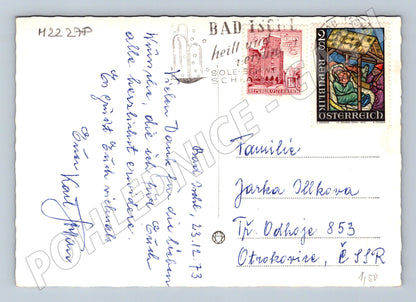 M22 278
BAD ISCHL
heilt und
SOLE-
REPUBLIK ÖSTERREICH
2S
REPUBLIK
ÖSTERREICH
Bad Ischl, 23.12.73
Vielen Dank für die lieben
Wünsche, die ich Euch
alle herzlichst erwidere.
Es grüßt Euch vielmals
Euer Karl
Familie
Jarka Illkova
Tř. Odboje 853
Otrokovice, ČSSR
1,50
POHLEDNICE